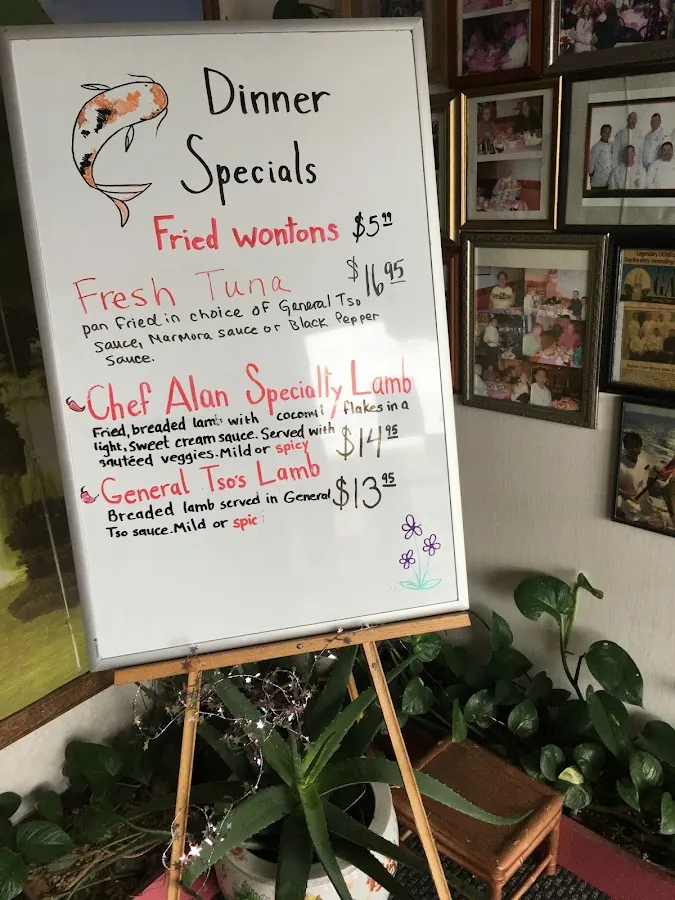 Dinner
Specials
Fried wontons $5.99
Fresh Tuna $16.95
pan fried in choice of General Tso
sauce, Marmora sauce or Black Pepper
sauce.
Chef Alan Specialty Lamb
Fried, breaded lamb with coconut flakes in a
light, sweet cream sauce. Served with
sautéed veggies. Mild or spicy $14.95
General Tso's Lamb
Breaded lamb served in General $13.95
Tso sauce. Mild or spic